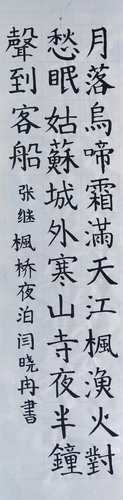 月落烏啼霜滿天江楓漁火對
愁眠姑蘇城外寒山寺夜半鐘
聲到客船
张继楓桥夜泊闫晓冉書